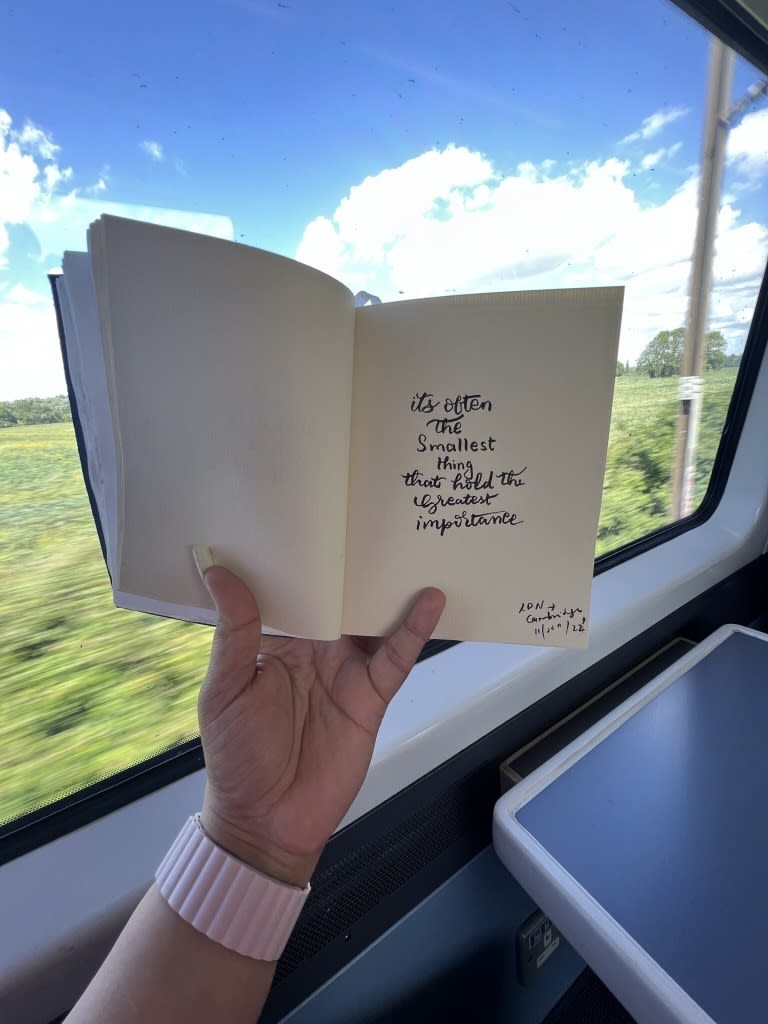 its often
the
Smallest
thing
that hold the
Greatest
importance
LDN →
Cambridge
11/Jun/22